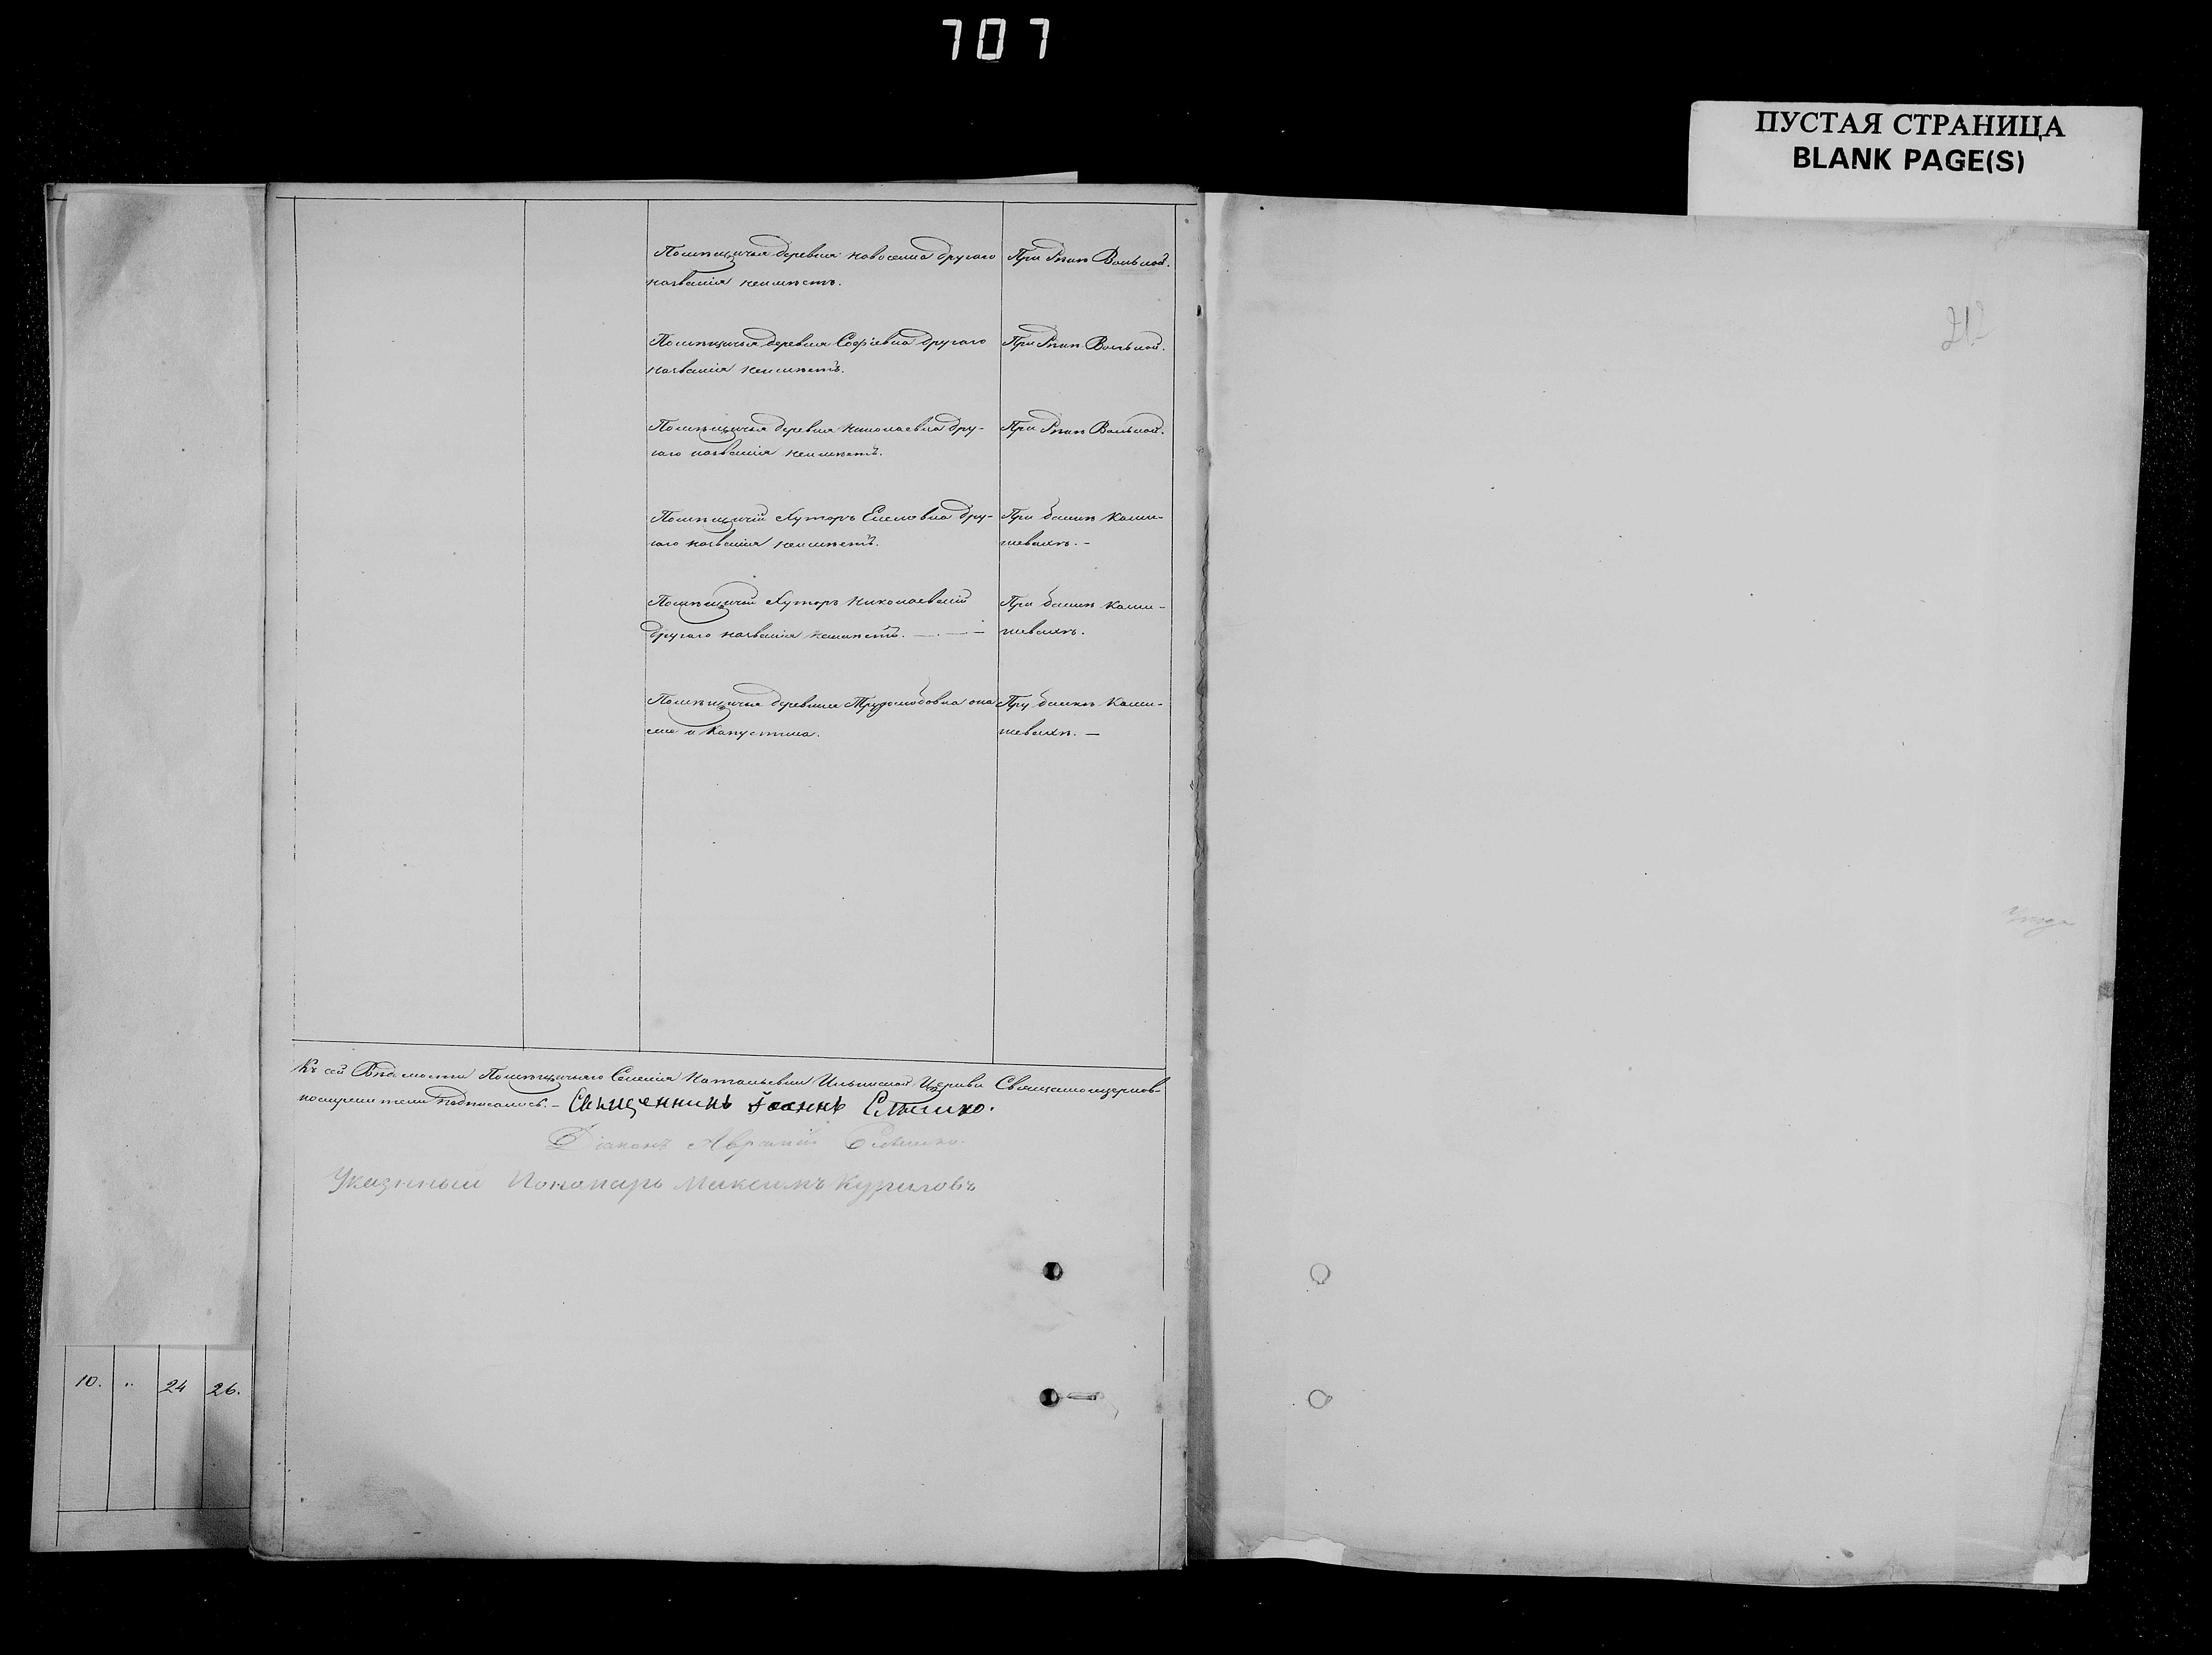 707
ПУСТАЯ СТРАНИЦА
BLANK PAGE(S)
Помѣщичья деревня Новоселка другаго
названія неимѣетъ.
При Рѣкѣ Вольной.
Помѣщичья деревня Софіевка другаго
названія неимѣетъ.
При Рѣкѣ Вольной.
Помѣщичья деревня Николаевка дру-
гаго названія неимѣетъ.
При Рѣкѣ Вольной.
Помѣщичій Хуторъ Еленовка дру-
гаго названія неимѣетъ.
При балкѣ Камы-
шевахѣ. –
Помѣщичій Хуторъ Николаевскій
другаго названія неимѣетъ. — . — –
При балкѣ Камы-
шевахѣ.
Помѣщичья деревня Трудолюбовка она
же и Капустина.
При балкѣ Камы-
шевахѣ. —
Къ сей Вѣдомости Помѣщичьяго Селенія Натальевки Ильинской Церкви Священноцерков-
нослужители подписались. – Священникъ Іоаннъ Слѣшко.
Діаконъ Аврамій
Указнный Пономарь Максимъ Куриловъ
10. „ 24 26.
212